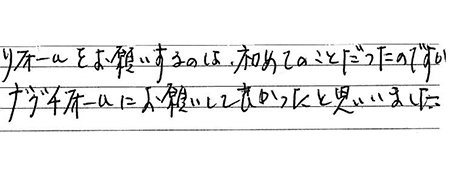 リフォームをお願いするのは、初めてのことだったのですが
ナヴィホームにお願いして良かったと思いいました